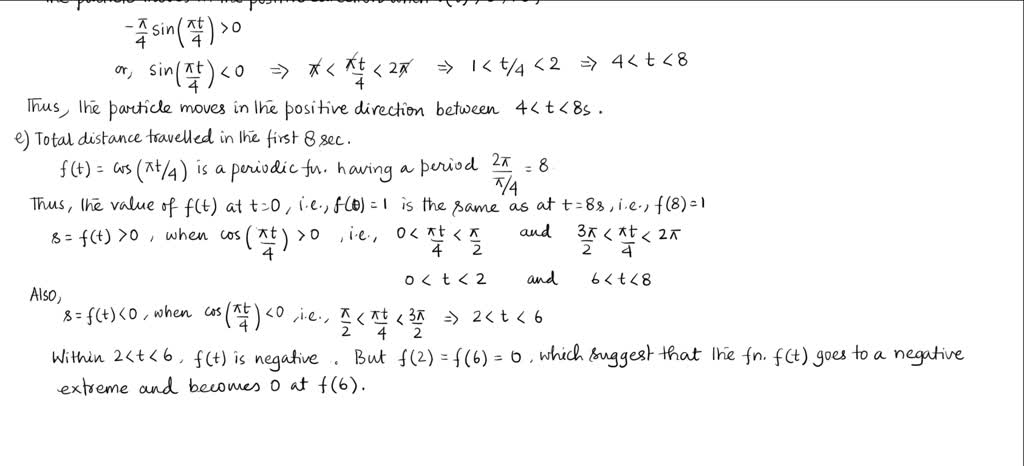 -π/4 sin(πt/4) > 0
or, sin(πt/4) < 0 ⇒ π < πt/4 < 2π ⇒ 1 < t/4 < 2 ⇒ 4 < t < 8
Thus, the particle moves in the positive direction between 4 < t < 8s.
e) Total distance travelled in the first 8 sec.
f(t) = cos(πt/4) is a periodic fn. having a period 2π/π/4 = 8
Thus, the value of f(t) at t=0, i.e., f(0) = 1 is the same as at t=8s, i.e., f(8)=1
s = f(t) > 0, when cos(πt/4) > 0, i.e., 0 < πt/4 < π/2 and 3π/2 < πt/4 < 2π
0 < t < 2 and 6 < t < 8
Also,
s = f(t) < 0, when cos(πt/4) < 0, i.e., π/2 < πt/4 < 3π/2 ⇒ 2 < t < 6
Within 2 < t < 6, f(t) is negative. But f(2) = f(6) = 0, which suggest that the fn. f(t) goes to a negative
extreme and becomes 0 at f(6).